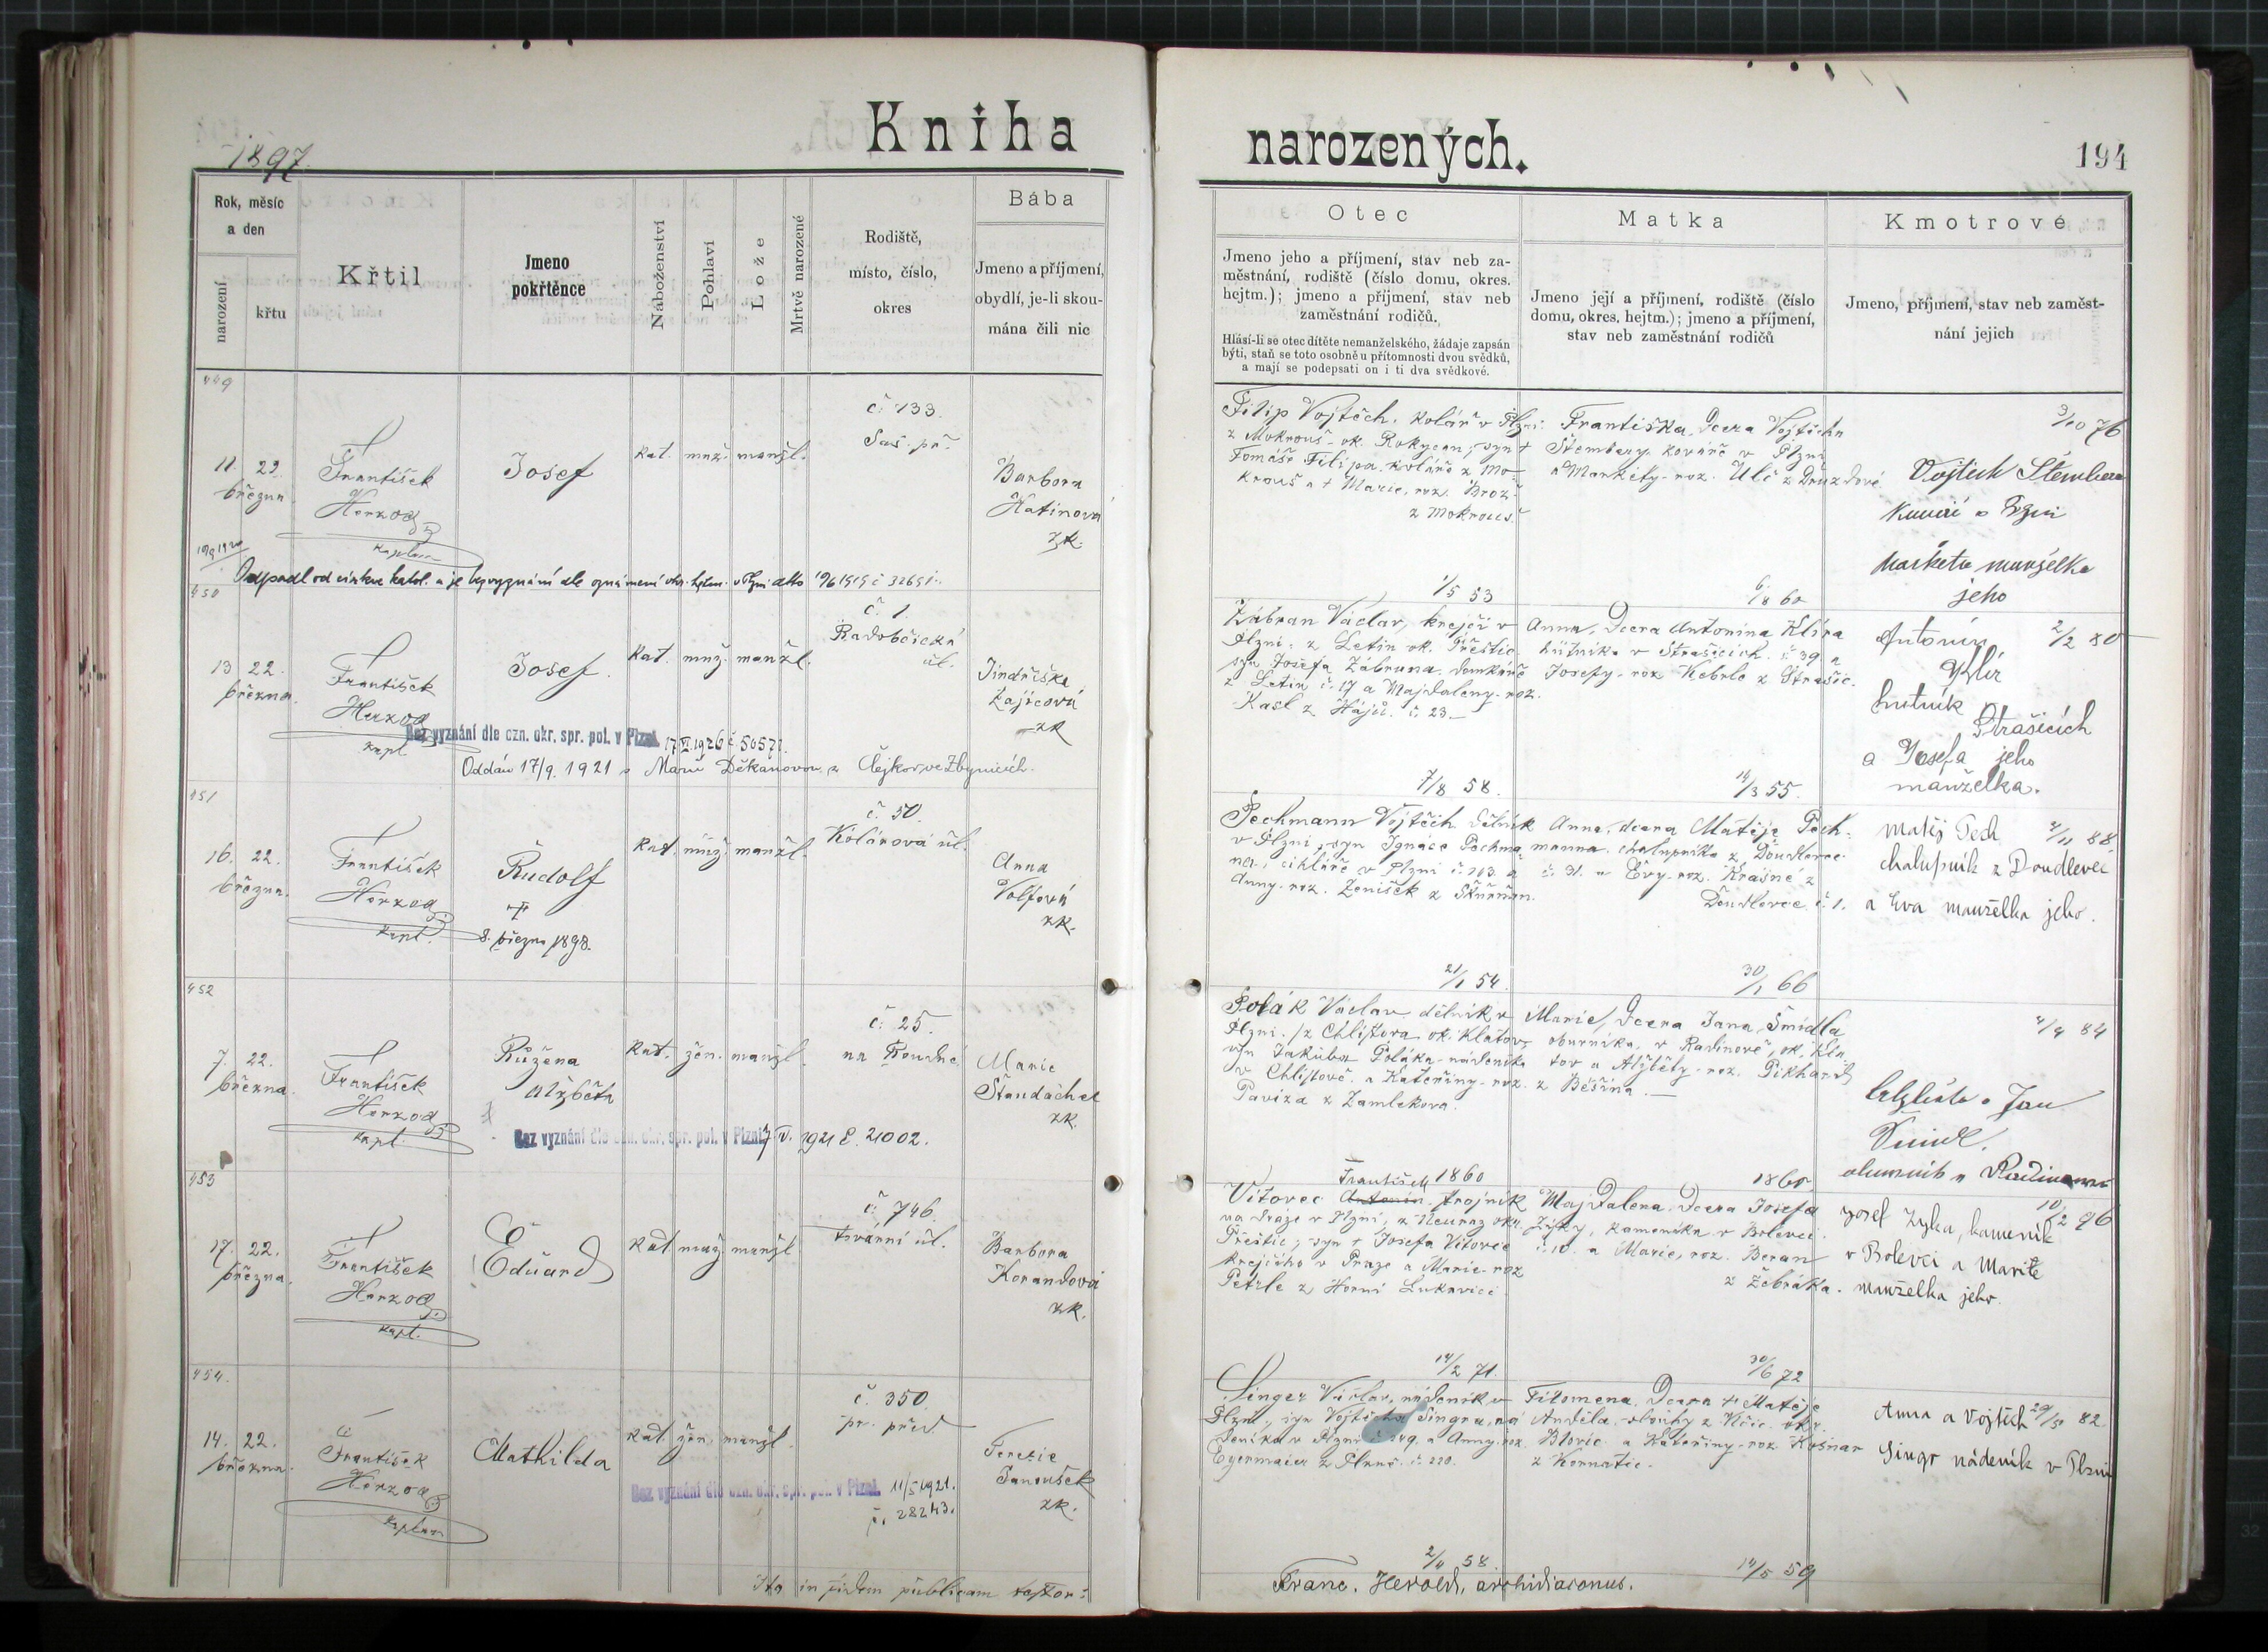 Kniha
1897.
Rok, měsíc
a den
narození
křtu
Křtil
Jmeno
pokřtěnce
Náboženství
Pohlaví
Lože
Mrtvě narozené
Rodiště,
místo, číslo,
okres
Bába
Jmeno a příjmení,
obydlí, je-li skou-
mána čili nic
449
11. 22.
března
František
Herzog
kaplan
Josef
kat. muž. manžl.
č. 133.
Sas. př.
Barbora
Hatinová
zk.
Odpadl od církve katol. a je bez vyznání dle oznámení okr. hejtm. v Plzni
450
13 22.
března.
František
Herzog
kapl
Josef.
kat. muž. manžl.
č. 1.
Radobčická
ul.
Jindřiška
Zajícová
zk
Bez vyznání dle ozn. okr. spr. pol. v Plzni.
Oddán 17/9. 1921 s Marií Děkanovou z Čejkov, ve Zbynicích.
451
16. 22.
března.
František
Herzog
kapl.
Rudolf
†
8. března 1898.
kat. muž. manžl.
č. 50.
Kolárová ul.
Anna
Volfová
zk.
452
7. 22.
března.
František
Herzog
kapl.
Růžena
Alžběta
kat. žen. manžl.
č. 25.
na Roudné
Marie
Štandachel
zk.
Bez vyznání dle ozn. okr. spr. pol. v Plzni 7. V. 1921 č. 21002.
453
17. 22.
března.
František
Herzog
kapl.
Eduard
kat muž manžl
č. 746.
tovární ul.
Barbora
Korandová
zk.
454.
14. 22.
března.
František
Herzog
kaplan
Mathilda
kat. žen. manžl.
č. 350.
pr. před.
Terezie
Janoušek
zk.
Bez vyznání dle ozn. okr. spr. pol. v Plzni. 11/5 1921.
č. 28243.
Ita in fidem publicam
narozených.
194
Otec
Jmeno jeho a příjmení, stav neb za-
městnání, rodiště (číslo domu, okres.
hejtm.); jmeno a příjmení, stav neb
zaměstnání rodičů.
Hlásí-li se otec dítěte nemanželského, žádaje zapsán
býti, staň se toto osobně u přítomnosti dvou svědků,
a mají se podepsati on i ti dva svědkové.
Matka
Jmeno její a příjmení, rodiště (číslo
domu, okres. hejtm.); jmeno a příjmení,
stav neb zaměstnání rodičů
Kmotrové
Jmeno, příjmení, stav neb zaměst-
nání jejich
Filip Vojtěch, kolář v Plzni
z Mokrouš ok. Rokycan, syn †
Tomáše Filipa koláře z Mo-
krouš a † Marie, roz. Brož
z Mokrouš.
1/5 53
Františka, dcera Vojtěcha
Štembery kováře v Plzni
a Markéty roz. Ulč z Druzdové.
6/8 60
3/10 76
Vojtěch Štembera
kovář v Plzni
Marketa manželka
jeho
Zábran Václav, krejčí v
Plzni z Letin ok. Přeštic
syn Josefa Zábrana domkáře
z Letin č. 17 a Majdaleny roz.
Kasl z Hájů. č. 23
7/8 58.
Anna, dcera Antonína Klíra
hutníka v Strašicích. č. 39 a
Josefy roz Kebrle z Strašic.
14/3 55.
2/2 80
Antonín
Klír
hutník
Strašicích
a Josefa jeho
manželka.
Pechmann Vojtěch dělník
v Plzni, syn Ignáce Pechma
na, cihláře v Plzni č. 103. a
Anny roz. Ženíšek z Skvrňan.
21/1 54.
Anna, dcera Matěje Pech-
manna, chalupníka z Doudlevec
č. 31. a Evy roz. Krásné z
Doudlevec č. 1.
30/1 66
4/11 88.
Matěj Pech
chalupník z Doudlevec
a Eva manželka jeho.
Polák Václav dělník v
Plzni. z Chlistova ok. Klatov
syn Jakuba Poláka nádeníka
v Chlistově a Kateřiny roz.
Pavíza z Zamlekova.
František 1860
Marie, dcera Jana Šmídla
oborníka, v Radinově, ok. Kla
tov a Alžběty roz. Pikhard
z Běšína.
1860
4/4 84
Alžběta a Jan
Šmídl
Vítovec Antonín, trojník
na dráze v Plzni, z Neuraz okr.
Přeštic; syn † Josefa Vítovce
krejčího v Praze a Marie roz
Petrle z Horní Lukavice
14/2 71.
Majdalena, dcera Josefa
Zýky, kameníka v Bolevci
č. 10. a Marie, roz. Beran
z Žebráka.
30/6 72
10/2 96
Josef Zyka, kameník
v Bolevci a Marie
manželka jeho.
Singer Václav, nádeník v
Plzni, syn Vojtěcha Singra, ná
deníka v Plzni č. 349. a Anny roz.
Egermaier z Plzně. č. 220.
2/4 58
Filomena, dcera † Matěje
Anděla, slouhy z Vlčic okr.
Blovic a Kateřiny roz. Kosnar
z Kornatic.
14/5 59
29/5 82
Anna a Vojtěch
Singr nádeník v Plzni
Franc. Herold, archidiaconus.